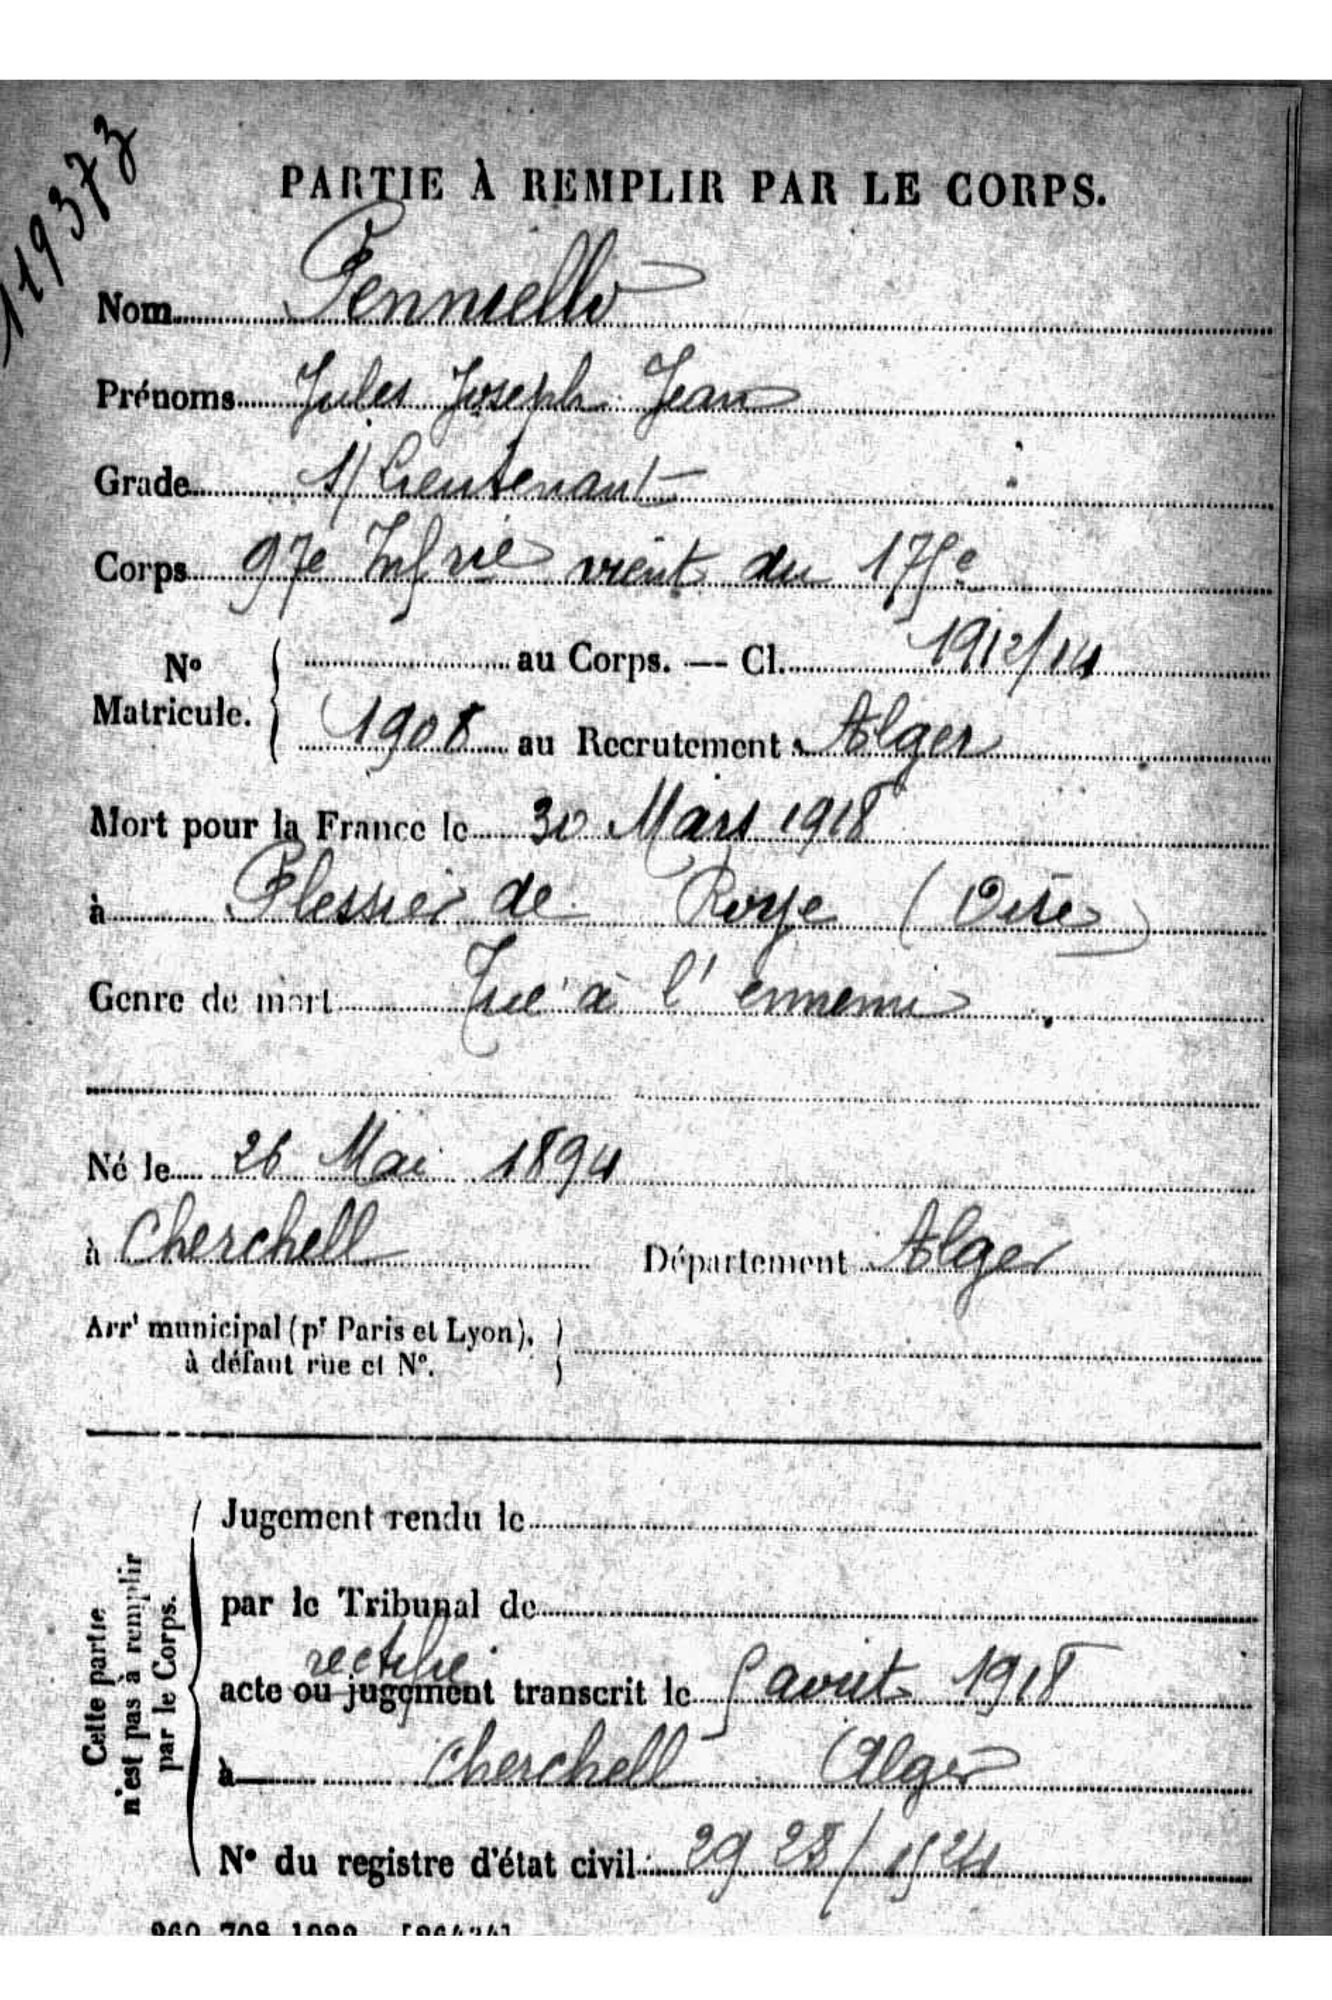 119373
PARTIE À REMPLIR PAR LE CORPS.
Nom Penniello
Prénoms Jules Joseph Jean
Grade S/Lieutenant
Corps 97e Infrie vient du 175e
No Matricule. { au Corps. — Cl. 1912/14
1908 au Recrutement Alger
Mort pour la France le 30 Mars 1918
à Plessier de Roye (Oise)
Genre de mort Tué à l'ennemi
Né le 26 Mai 1894
à Cherchell Département Alger
Arrt municipal (pr Paris et Lyon),
à défaut rue et No.
Cette partie
n'est pas à remplir
par le Corps.
Jugement rendu le
par le Tribunal de
rectifié
acte ou jugement transcrit le 5 avril 1918
à Cherchell Alger
No du registre d'état civil 29 28/1524